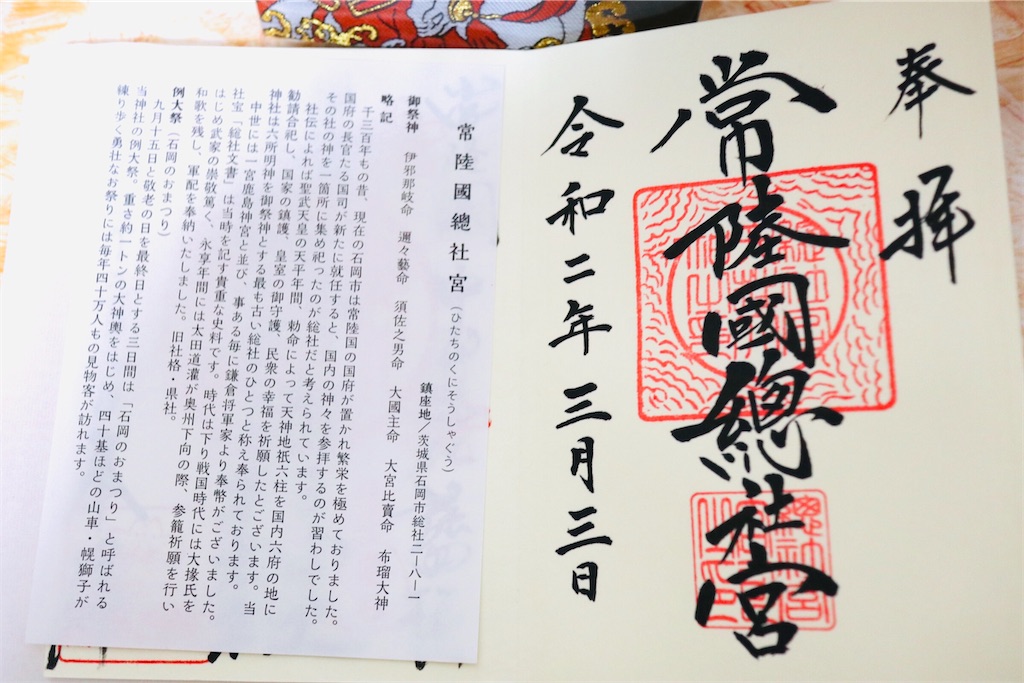 奉拝
常陸國總社宮
令和二年三月三日
常陸國總社宮（ひたちのくにそうしゃぐう）
鎮座地／茨城県石岡市総社二ー八ー一
御祭神　伊邪那岐命　邇々藝命　須佐之男命　大國主命　大宮比賣命　布瑠大神
略記
千三百年もの昔、現在の石岡市は常陸国の国府が置かれ繁栄を極めておりました。
国府の長官たる国司が新たに就任すると、国内の神々を参拝するのが習わしでした。
その社の神を一箇所に集め祀ったのが総社だと考えられています。
社伝によれば聖武天皇の天平年間、勅命によって天神地祇六柱を国内六府の地に
勧請合祀し、国家の鎮護、皇室の御守護、民衆の幸福を祈願したとございます。当
神社は六所明神を御祭神とする最も古い総社のひとつと称え奉られております。
中世には一宮鹿島神宮と並び、事ある毎に鎌倉将軍家より奉幣がございました。
社宝「総社文書」は当時を記す貴重な史料です。時代は下り戦国時代には大掾氏を
はじめ武家の崇敬篤く、永享年間には太田道灌が奥州下向の際、参籠祈願を行い
和歌を残し、軍配を奉納いたしました。旧社格・県社。
例大祭（石岡のおまつり）
九月十五日と敬老の日を最終日とする三日間は「石岡のおまつり」と呼ばれる
当神社の例大祭。重さ約一トンの大神輿をはじめ、四十基ほどの山車・幌獅子が
練り歩く勇壮なお祭りには毎年四十万人もの見物客が訪れます。